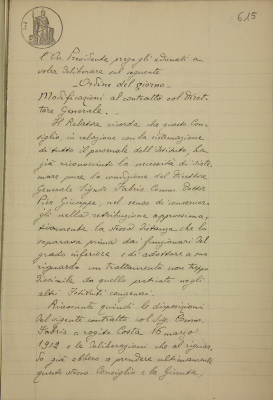 615
l'On. Presidente prega gli adunati a
voler deliberare sul seguente
- Ordine del giorno -
Modificazioni al contratto col Diret-
tore Generale. -
Il Relatore ricorda che questo Con-
siglio in relazione con la sistemazione
di tutto il personale dell'Istituto, ha
già riconosciuto la necessità di siste-
mare pure la condizione del Direttore
Generale Signor Fabris Comm. Dottor
Pier Giuseppe, nel senso di conservar-
gli nella retribuzione approssima-
tivamente la stessa distanza che lo
separava prima dai funzionari del
grado inferiore e di adottare a suo
riguardo un trattamento non troppo
dissimile da quello praticato negli
altri Istituti congeneri.
Riassunte quindi le disposizioni
del vigente contratto col Sig. Comm.
Fabris a rogito Costa 16 marzo
1912 e le deliberazioni che al riguar-
do già ebbero a prendere ultimamente
questo stesso Consiglio e la Giunta,